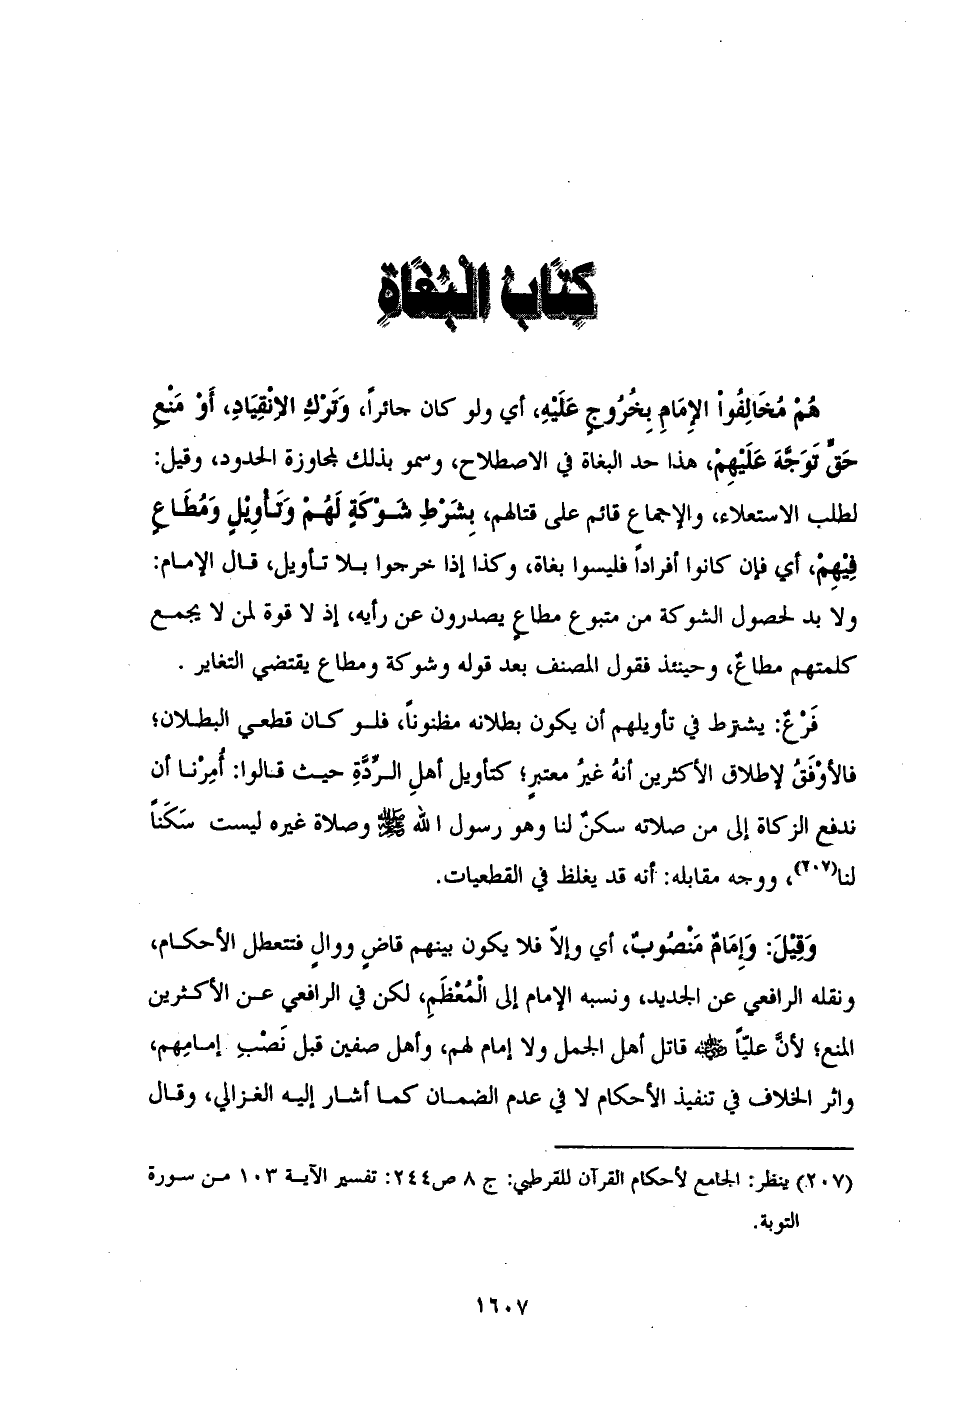 كِتَابُ الْبُغَاةِ
هُمْ مُخَالِفُواْ الإِمَامِ بِخُرُوجٍ عَلَيْهِ، أي ولو كان جائراً، وَتَرْكِ الاِنْقِيَادِ، أَوْ مَنْعِ
حَقٍّ تَوَجَّهَ عَلَيْهِمْ، هذا حد البغاة في الاصطلاح، وسمو بذلك لمجاوزة الحدود، وقيل:
لطلب الاستعلاء، والإجماع قائم على قتالهم، بِشَرْطِ شَوْكَةٍ لَهُمْ وَتَأْوِيْلٍ وَمُطَاعٍ
فِيْهِمْ، أي فإن كانوا أفراداً فليسوا بغاة، وكذا إذا خرجوا بلا تأويل، قال الإمام:
ولا بد لحصول الشوكة من متبوع مطاعٍ يصدرون عن رأيه، إذ لا قوة لمن لا يجمع
كلمتهم مطاعٌ، وحينئذ فقول المصنف بعد قوله وشوكة ومطاع يقتضي التغاير .
فَرْعٌ: يشترط في تأويلهم أن يكون بطلانه مظنوناً، فلو كان قطعي البطلان؛
فالأَوْفَقُ لإطلاق الأكثرين أنهُ غيرُ معتبرٍ؛ كتأويل أهلِ الرِّدَّةِ حيث قالوا: أُمِرْنا أن
ندفع الزكاة إلى من صلاته سكنٌ لنا وهو رسول الله ﷺ وصلاة غيره ليست سَكَناً
لنا(٢٠٧)، ووجه مقابله: أنه قد يغلظ في القطعيات.
وَقِيْلَ: وَإِمَامٌ مَنْصُوبٌ، أي وإلاّ فلا يكون بينهم قاضٍ ووالٍ فتتعطل الأحكام،
ونقله الرافعي عن الجديد، ونسبه الإمام إلى الْمُعْظَمِ، لكن في الرافعي عن الأكثرين
المنع؛ لأنَّ عليّاً رضي الله عنه قاتل أهل الجمل ولا إمام لهم، وأهل صفين قبل نَصْبِ إمامِهم،
واثر الخلاف في تنفيذ الأحكام لا في عدم الضمان كما أشار إليه الغزالي، وقال
(٢٠٧) ينظر: الجامع لأحكام القرآن للقرطبي: ج ٨ ص٢٤٤: تفسير الآية ١٠٣ من سورة
التوبة.
١٦٠٧